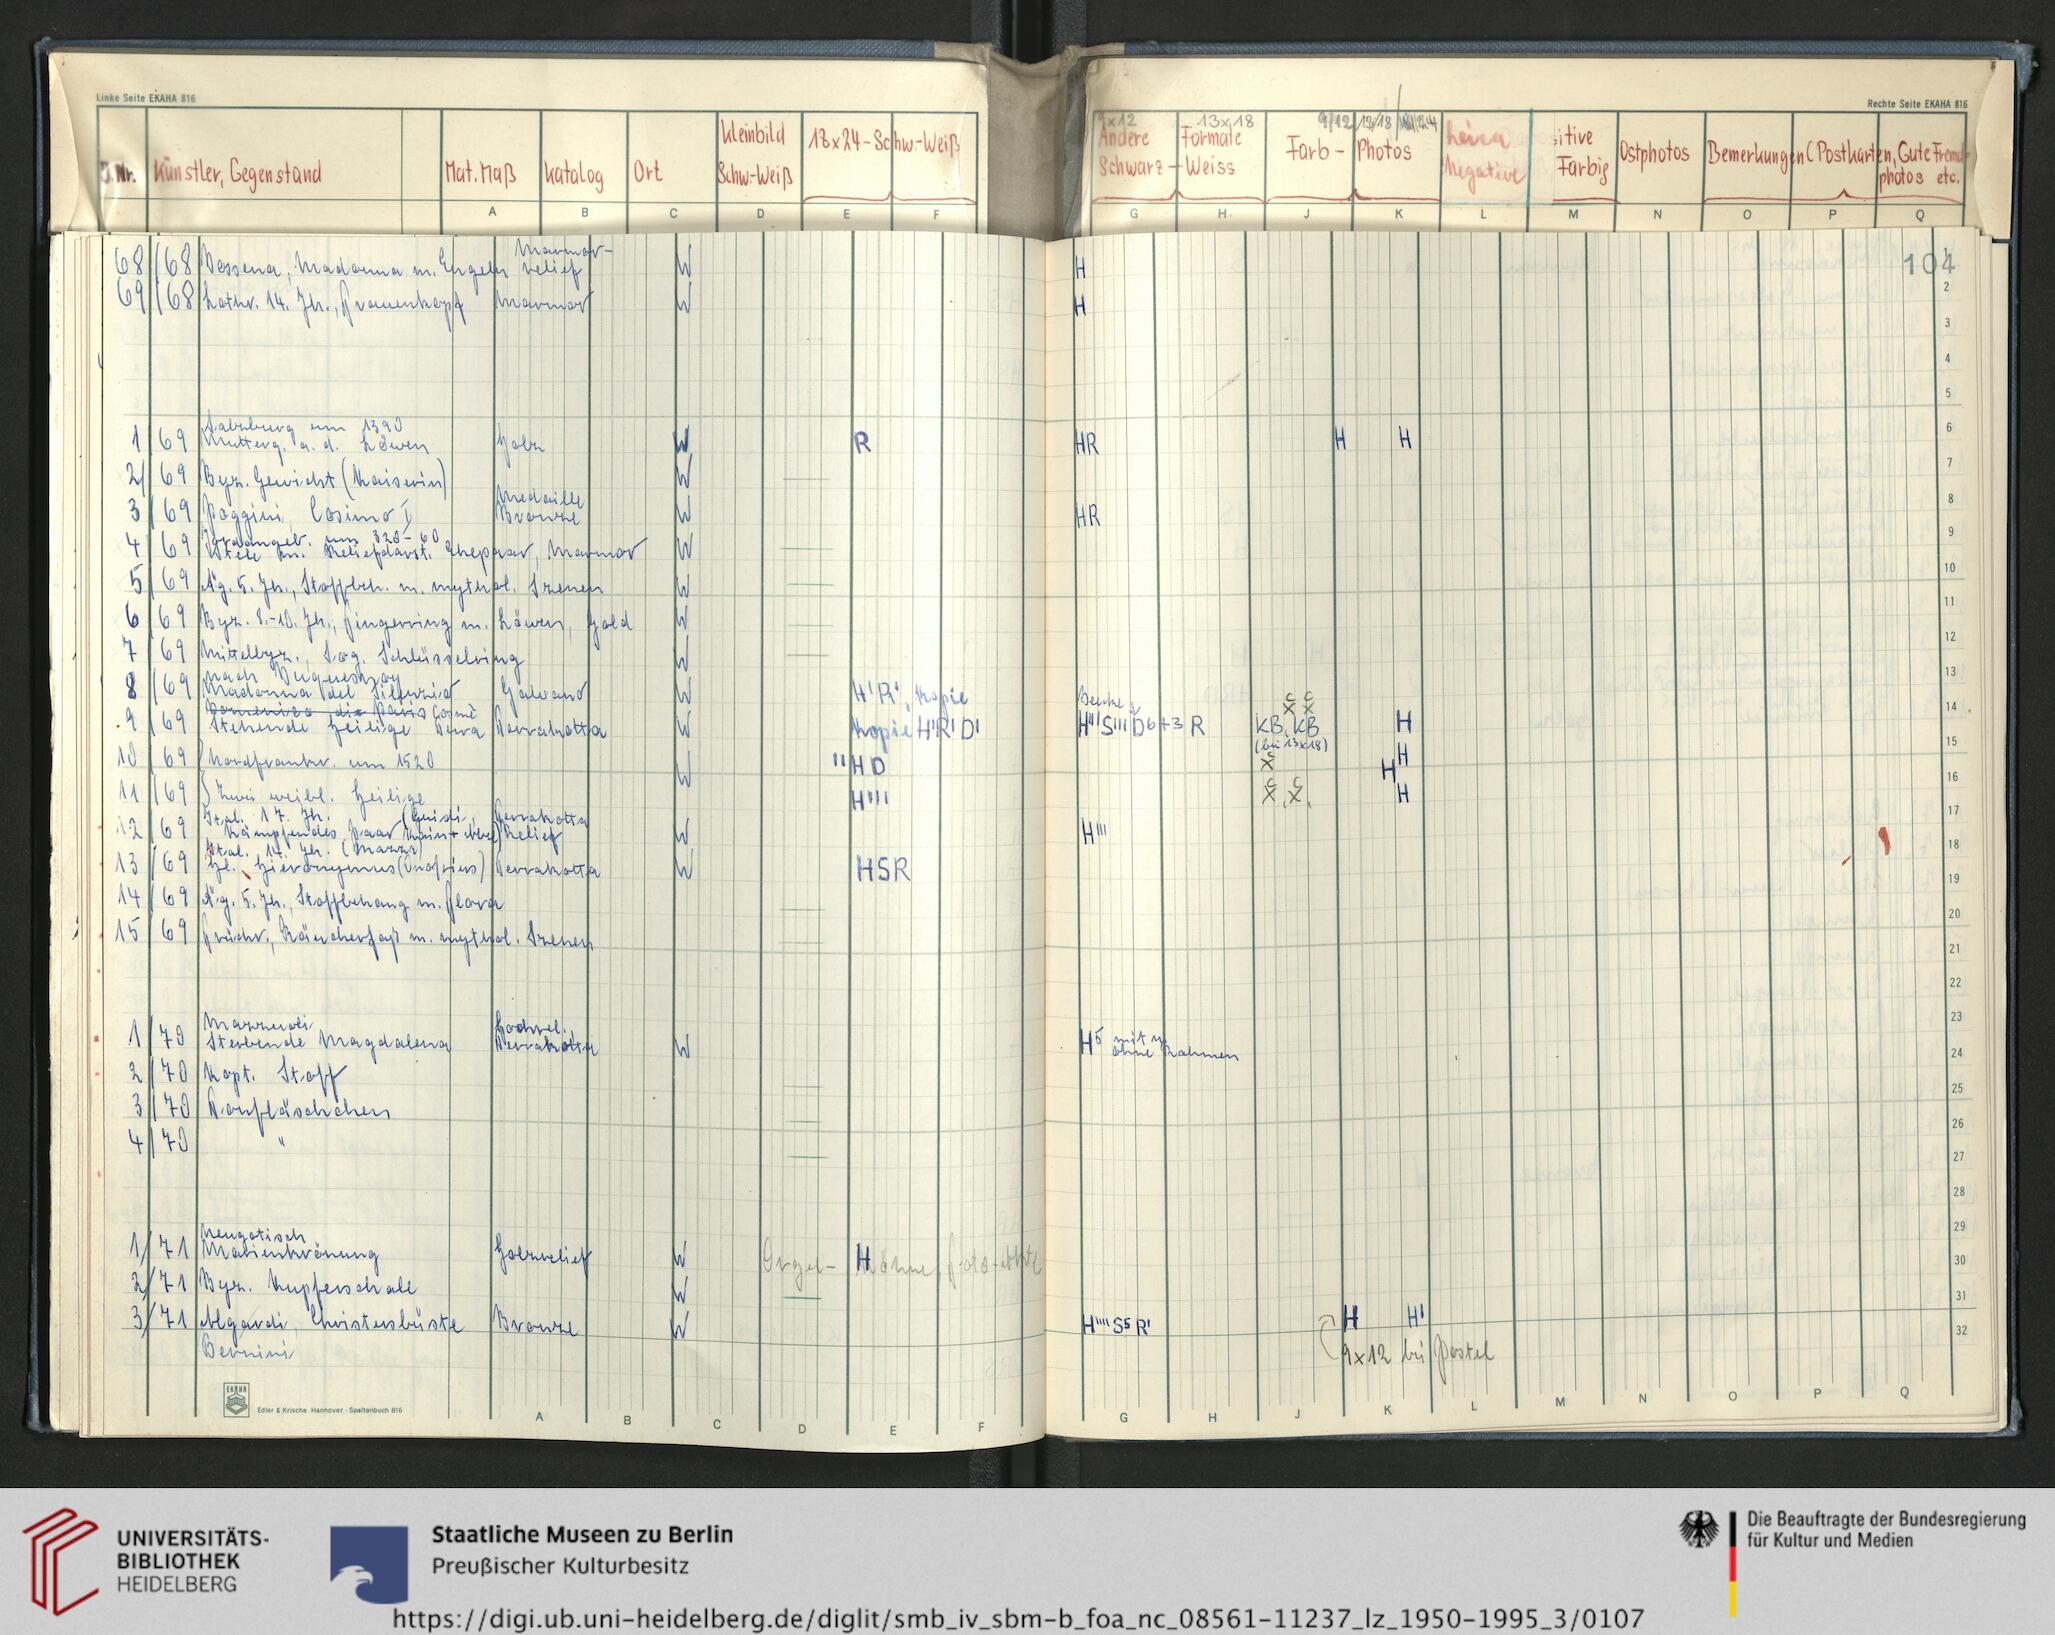 Linke Seite EKAHA 816
Rechte Seite EKAHA 816
J.Nr. Künstler, Gegenstand Mat. Maß Katalog Ort Kleinbild Schw.-Weiß 18x24-Schw.-Weiß
A B C D E F
9x12 13x18 9/12 13/18
Andere Formate Schwarz-Weiss Farb-Photos Leica Negative sitive Farbig Ostphotos Bemerkungen (Postkarten, Gute Fremdphotos etc.
G H J K L M N O P Q
104
68/68 Madonna m. Engeln Marmor-relief W H
69/68 Lothr. 14. Jh., Frauenkopf Marmor W H
1/69 Salzburg um 1390
Mutterg. a. d. Löwen Holz W R HR H H
2/69 Byz. Gewicht (Kaiserin) W
3/69 Poggini, Cosimo I Medaille Bronze W HR
4/69 um 320-60
Stele m. Reliefdarst. Ehepaar, Marmor W
5/69 Äg. 5. Jh., Stoffbeh. m. mythol. Szenen W
6/69 Byz. 8.-10. Jh., Fingerring m. Löwen, Gold W
7/69 Mittelbyz., Sog. Schlüsselring W
8/69 nach Duquesnoy
Madonna del Silenzio Galvano W H'R', Kopie
9/69 Stehende Heilige Terrakotta W Kopie H'R'D' H''S'''D6+3 R KB, KB H
(bei 13x18)
10/69 Nordfränk. um 1520 W "HD H
11/69 Zwei weibl. Heilige H'''' H
12/69 Ital. 17. Jh. (Guidi, Terrakotta
Kämpfendes Paar Kain + Abel) Relief W H'''
13/69 Hl. Hieronymus (Onofrius) Terrakotta W HSR
14/69 Äg. 5. Jh., Stoffbehang m. Flora
15/69 Frühchr., Räucherfaß m. mythol. Szenen
1/70 Mazzuoli
Sterbende Magdalena Hochrel. Terrakotta W H5 mit u. ohne Rahmen
2/70 Kopt. Stoff
3/70 Tonfläschchen
4/70 "
1/71 Neugotisch
Marienkrönung Holzrelief W Orgel- H
2/71 Byz. Kupferschale W
3/71 Algardi, Christusbüste Bronze W H''''S5R' H H'
Bernini
9x12 bei Pastel
1
2
3
4
5
6
7
8
9
10
11
12
13
14
15
16
17
18
19
20
21
22
23
24
25
26
27
28
29
30
31
32
EKAHA
Edler & Krische Hannover - Spaltenbuch 816
A B C D E F
G H J K L M N O P Q
UNIVERSITÄTS-
BIBLIOTHEK
HEIDELBERG
Staatliche Museen zu Berlin
Preußischer Kulturbesitz
Die Beauftragte der Bundesregierung
für Kultur und Medien
https://digi.ub.uni-heidelberg.de/diglit/smb_iv_sbm-b_foa_nc_08561-11237_lz_1950-1995_3/0107